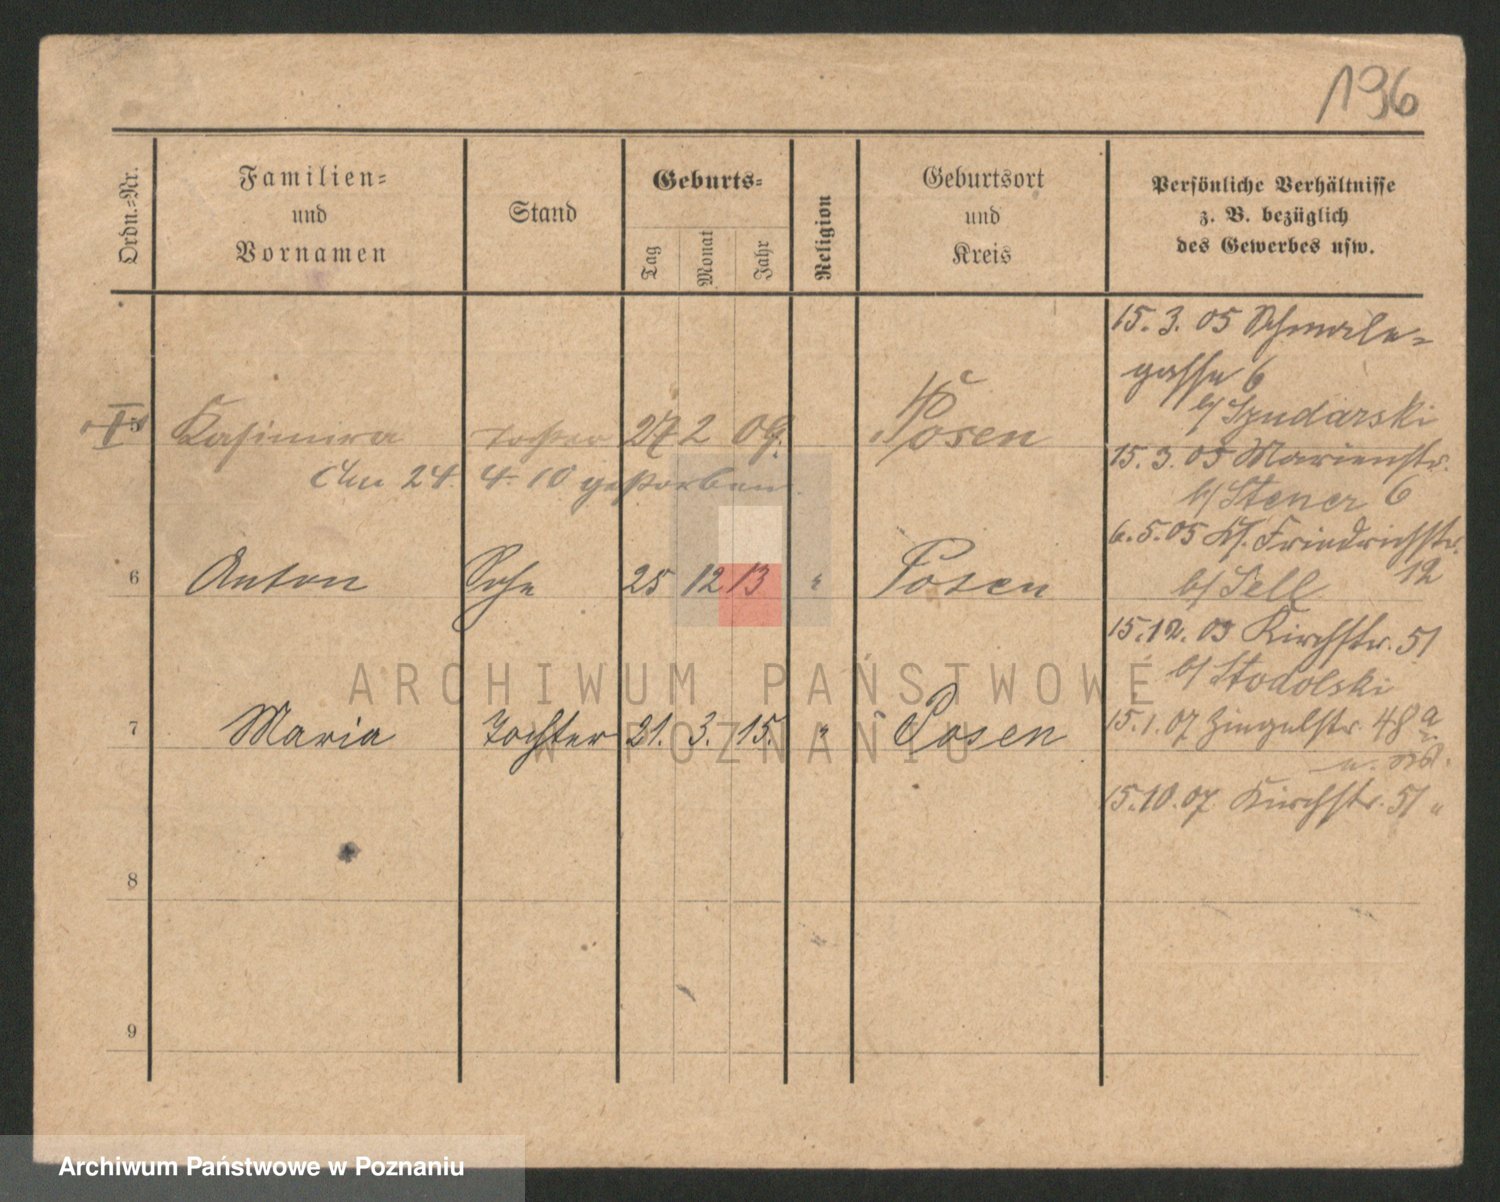 196
Ordn.-Nr.
Familien-
und
Vornamen
Stand
Geburts-
Tag
Monat
Jahr
Religion
Geburtsort
und
Kreis
Persönliche Verhältnisse
z. B. bezüglich
des Gewerbes usw.
15. 3. 05 Schmale-
gasse 6
b/ Szudarski
5 Kasimira Tochter 27 2 09. Posen
15. 3. 05 Marienstr.
Am 24. 4. 10 gestorben.
b/ Stener 6
6. 5. 05 Kl. Friedrichstr.
12
6 Anton Sohn 25 12 13 " Posen
b/ Sell
15. 12. 05 Kirchstr. 51
b/ Stodolski
7 Maria Tochter 21. 3. 15. " Posen
15. 1. 07 Zingelstr. 48a
15. 10. 07 Kirchstr. 51 "
8
9
ARCHIWUM PAŃSTWOWE
W POZNANIU
Archiwum Państwowe w Poznaniu